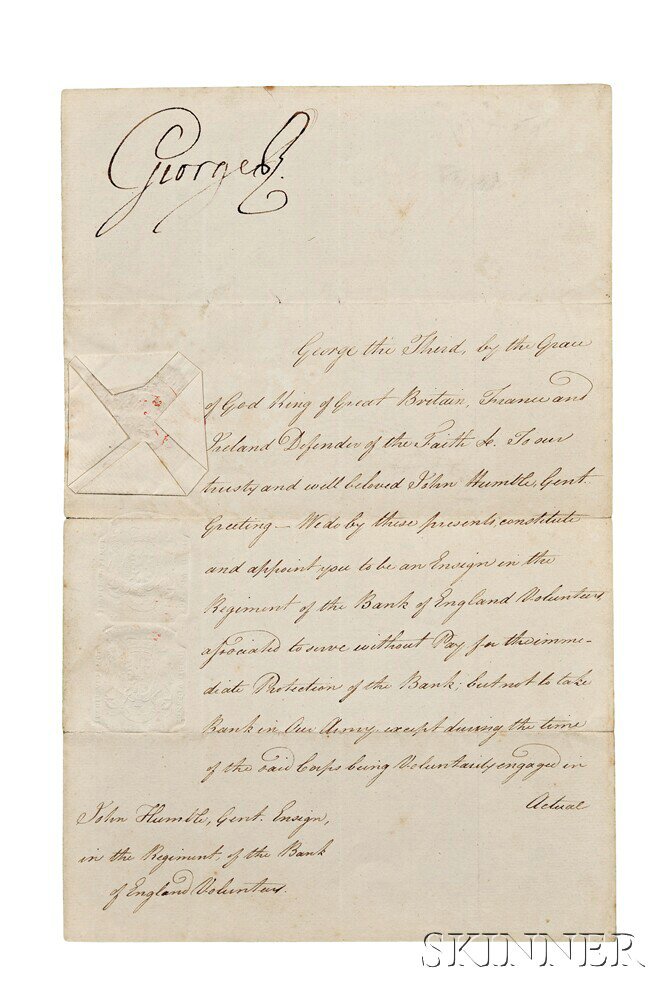 George R.
George the Third, by the Grace
of God King of Great Britain, France and
Ireland Defender of the Faith &c. To our
trusty and well beloved John Humble, Gent.
Greeting — We do by these presents constitute
and appoint you to be an Ensign in the
Regiment of the Bank of England Volunteers
associated to serve without Pay for the imme-
diate Protection of the Bank; but not to take
Rank in Our Army except during the time
of the said Corps being Voluntarily engaged in
Actual
John Humble, Gent. Ensign,
in the Regiment, of the Bank
of England Volunteers.
SKINNER